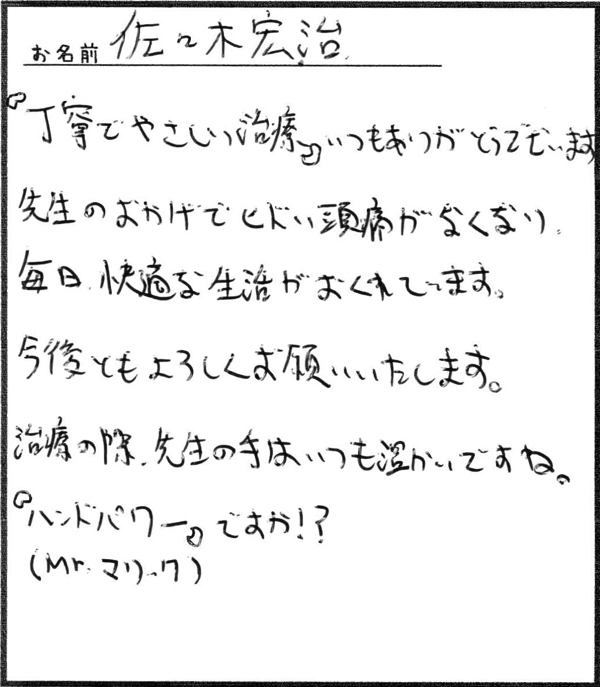 お名前 佐々木宏治
『丁寧でやさしい治療』いつもありがとうございます
先生のおかげでヒドい頭痛がなくなり、
毎日、快適な生活がおくれてます。
今後ともよろしくお願いいたします。
治療の際、先生の手はいつも温かいですね。
『ハンドパワー』ですか!?
(Mr.マリック)